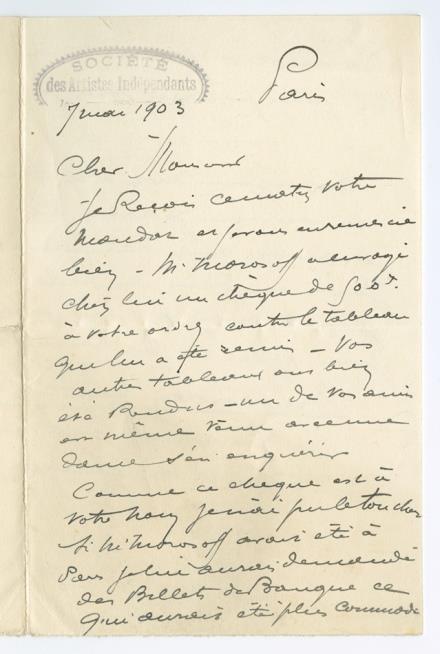 SOCIÉTÉ
des Artistes Indépendants
Paris
7 mai 1903
Cher Monsieur
Je Reçois ce matin votre
mandat et je vous en remercie
bien - M. Morosoff a envoyé
chez lui un chèque de 500f.
à votre ordre contre le tableau
qui lui a été remis - Vos
autres tableaux ont bien
été Rendus - un de vos amis
est même venu avec une
dame s'en enquérir
Comme ce chèque est à
votre nom je n'ai pu le toucher
Si M. Morosoff avait été à
Paris je lui aurais demandé
des Billets de Banque ce
qui aurait été plus commode